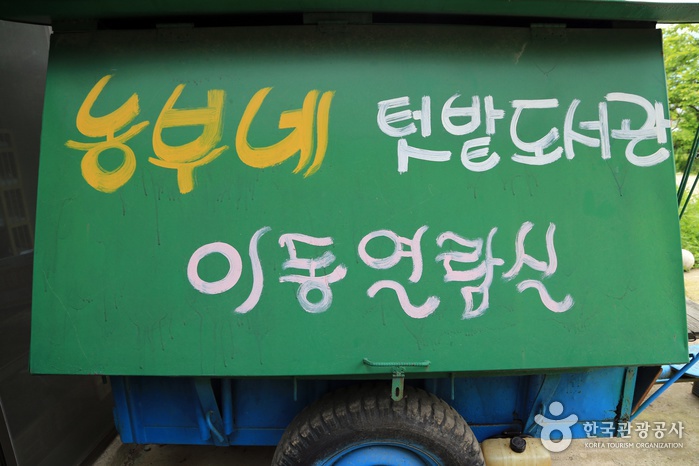 농부네 텃밭도서관
이동열람실
한국관광공사
KOREA TOURISM ORGANIZATION